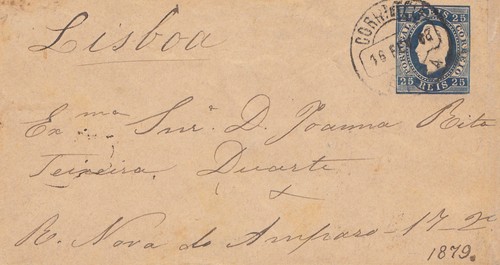 Lisboa
CORREIO
16 FEV
PORTUGAL REIS CORREIO
25 25
25 REIS 25
Ex.ma Snr.ª D. Joanna Rita
Teixeira Duarte
R. Nova do Amparo - 17 - 2º
1879.